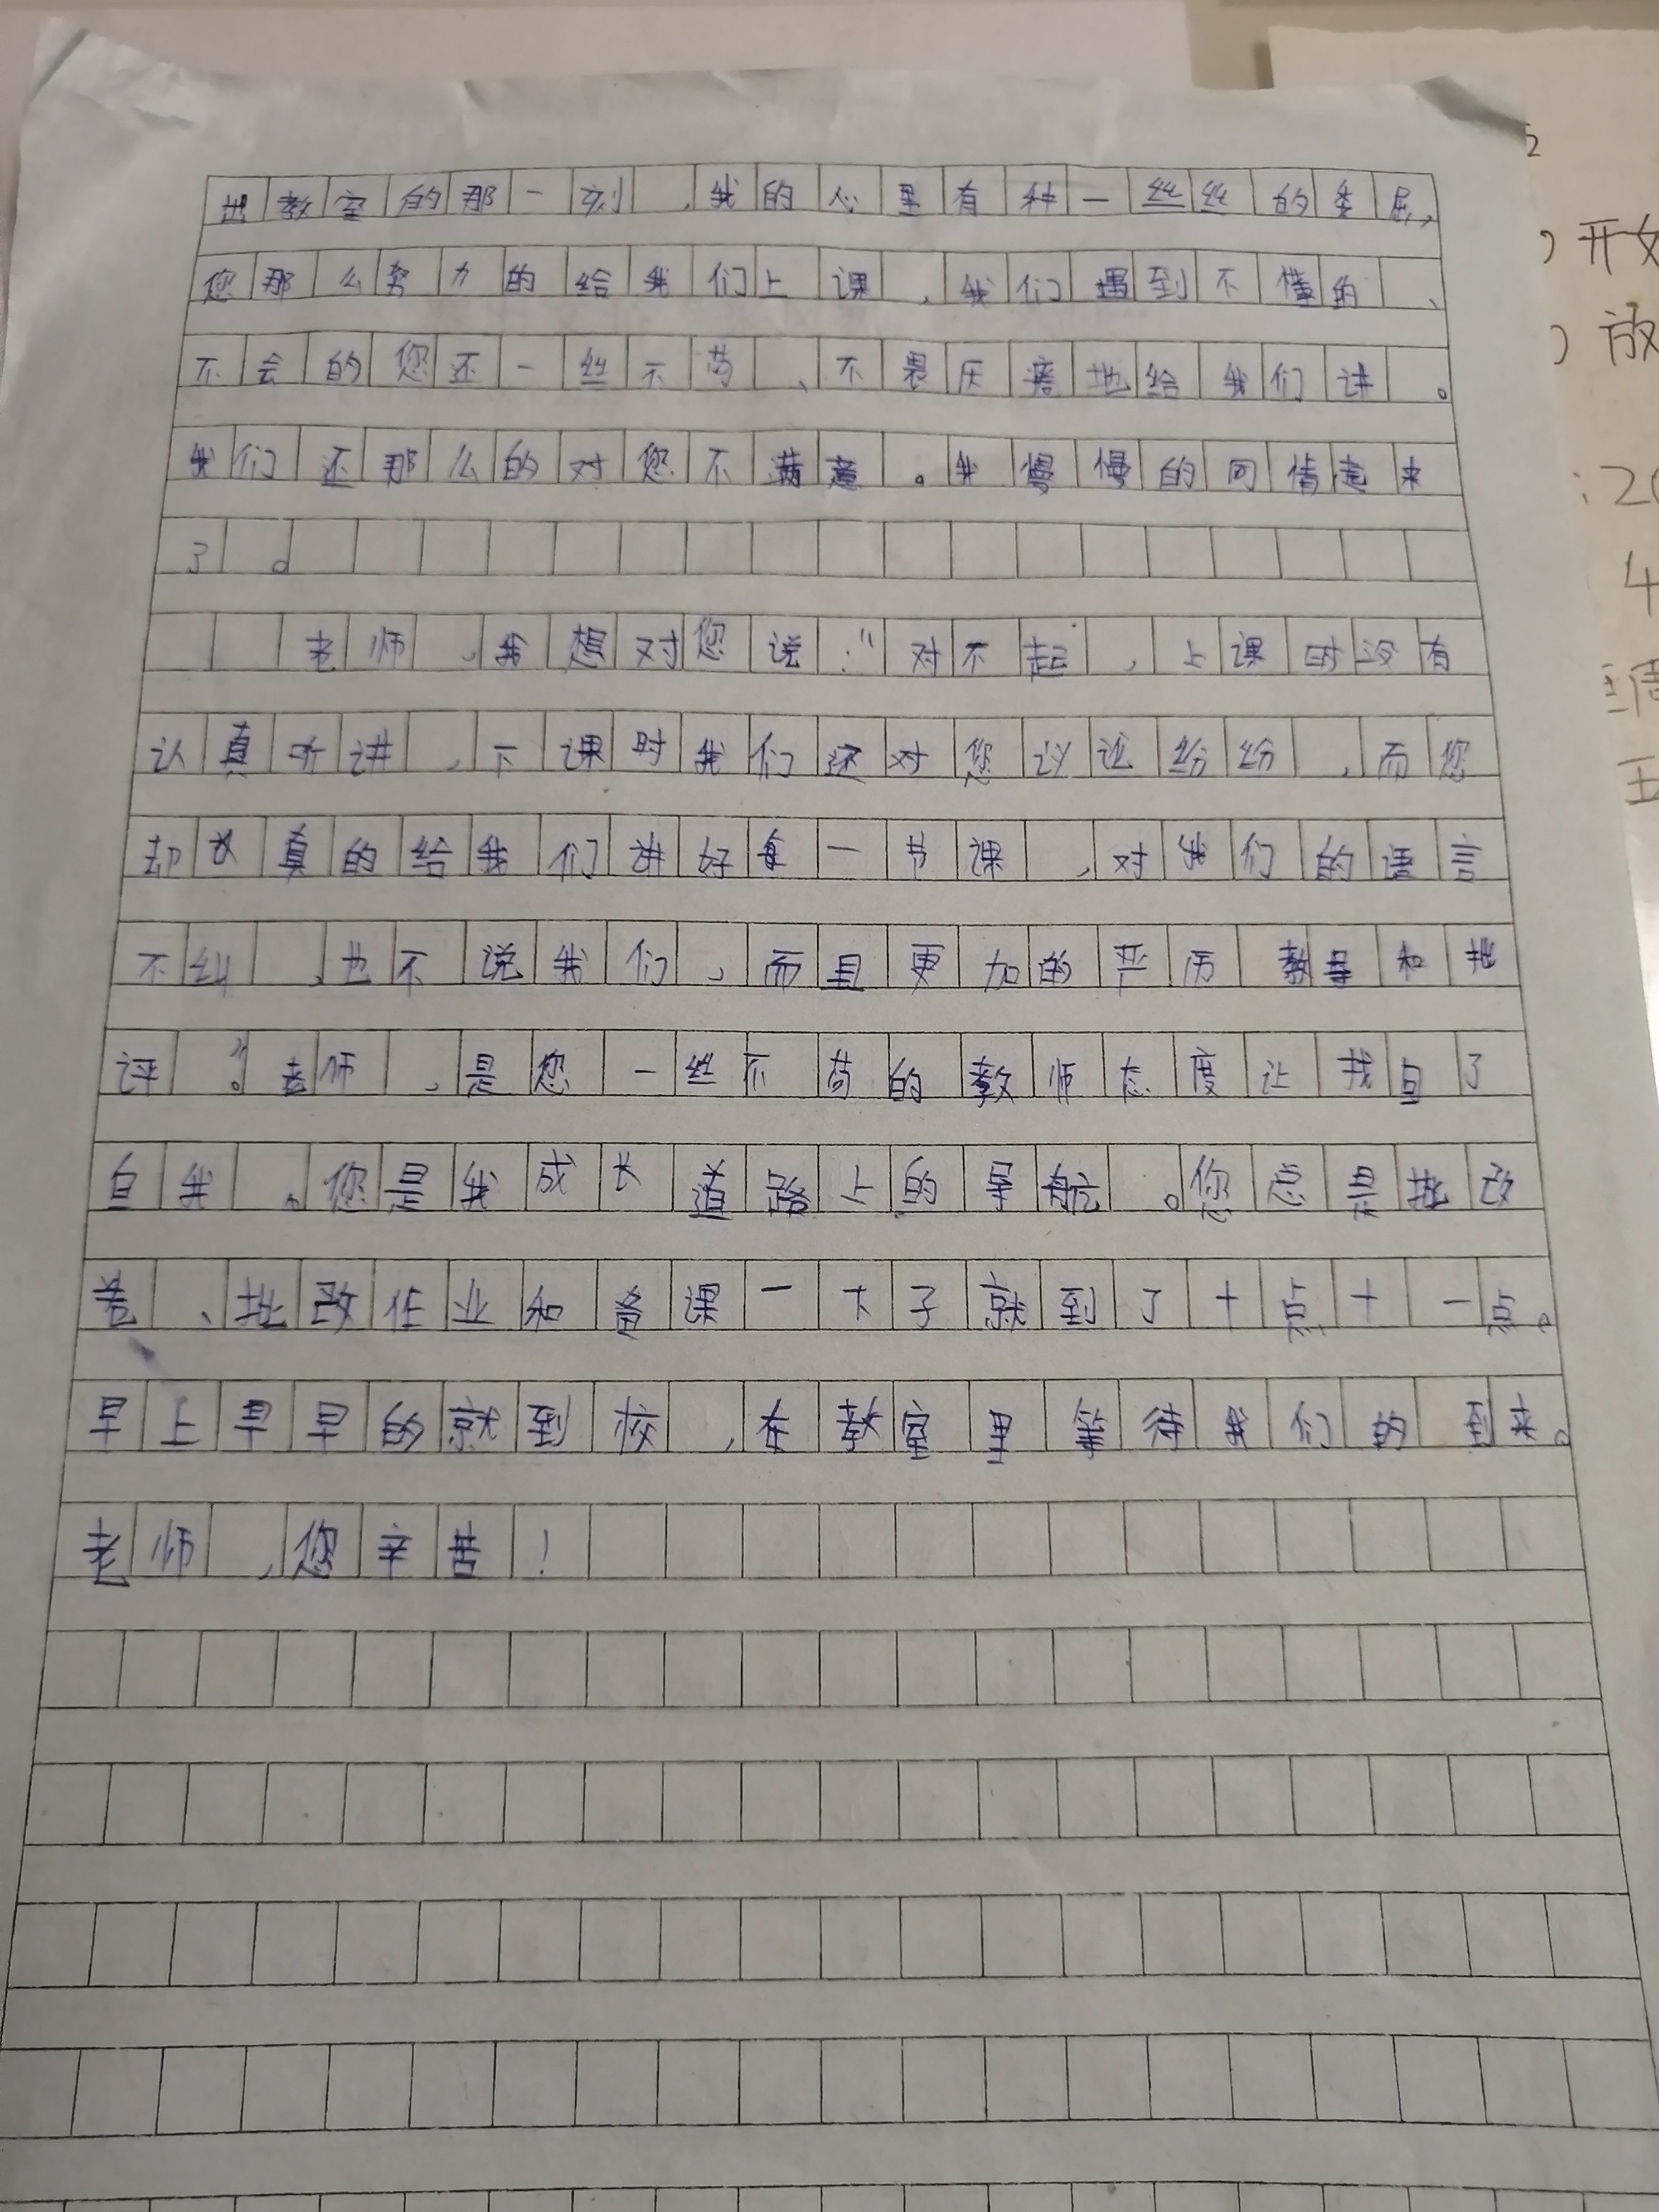 出教室的那一刻，我的心里有种一丝丝的委屈，
您那么努力的给我们上课，我们遇到不懂的、
不会的您还一丝不苟、不畏厌磨地给我们讲。
我们还那么的对您不满意。我慢慢的同情起来
了。
老师，我想对您说："对不起，上课时没有
认真听讲，下课时我们还对您议论纷纷，而您
却认真的给我们讲好每一节课，对我们的语言
不纠，也不说我们，而且更加的严厉教导和批
评。"老师，是您一丝不苟的教师态度让我自了
自我。您是我成长道路上的导航。您总是批改
卷、批改作业和备课一下子就到了十点十一点。
早上早早的就到校，在教室里等待我们的到来。
老师，您辛苦！
2
）开
）放
：20
4